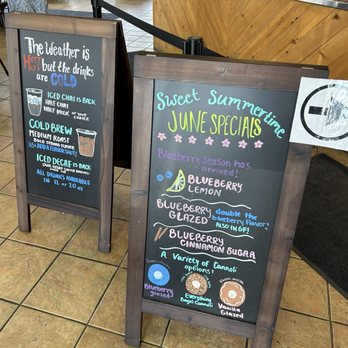 The Weather is
HOT but the drinks
are COLD
ICED Chai is BACK
Half Chai
Half Milk
COLD BREW
Medium ROAST
ICED DECAF is BACK
All DRINKS AVAILABLE
IN 12 or 20oz
Sweet Summertime
JUNE SPECIALS
Blueberry Season has
Arrived!
BLUEBERRY
LEMON
BLUEBERRY
GLAZED
double the
blueberry flavor!
ALSO IN GF!
BLUEBERRY
CINNAMON SUGAR
A Variety of Cannoli
options!
Blueberry
Glazed
Everything
Bagel Cannoli
Vanilla
Glazed